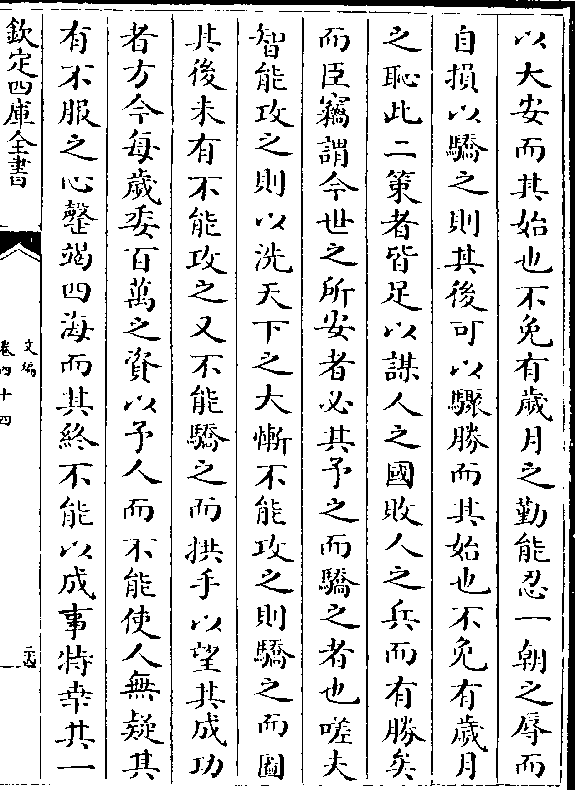 以大安而其始也不免有歲月之勤能忍一朝之辱而
自損以驕之則其後可以驟勝而其始也不免有歲月
之恥此二策者皆足以謀人之國敗人之兵而有勝矣
而臣竊謂今世之所安者必其予之而驕之者也嗟夫
智能攻之則以洗天下之大慚不能攻之則驕之而圖
其後未有不能攻之又不能驕之而拱手以望其成功
者方今每歲委百萬之資以予人而不能使人無疑其
有不服之心罄竭四海而其終不能以成事特幸其一
欽定四庫全書
文編
卷四十四